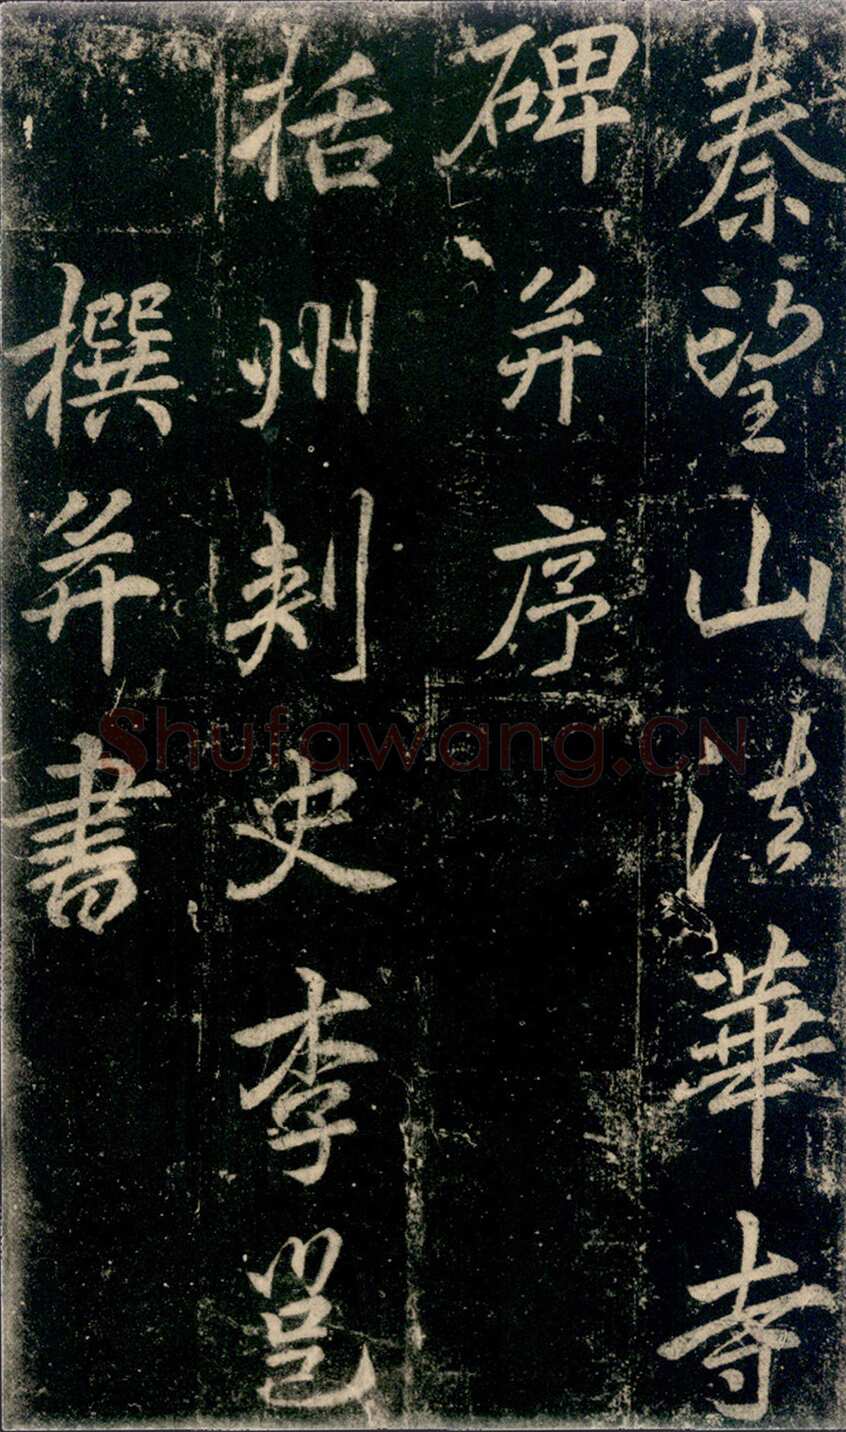 秦望山法華寺
碑并序
括州刺史李邕
撰并書
Shufawang.CN